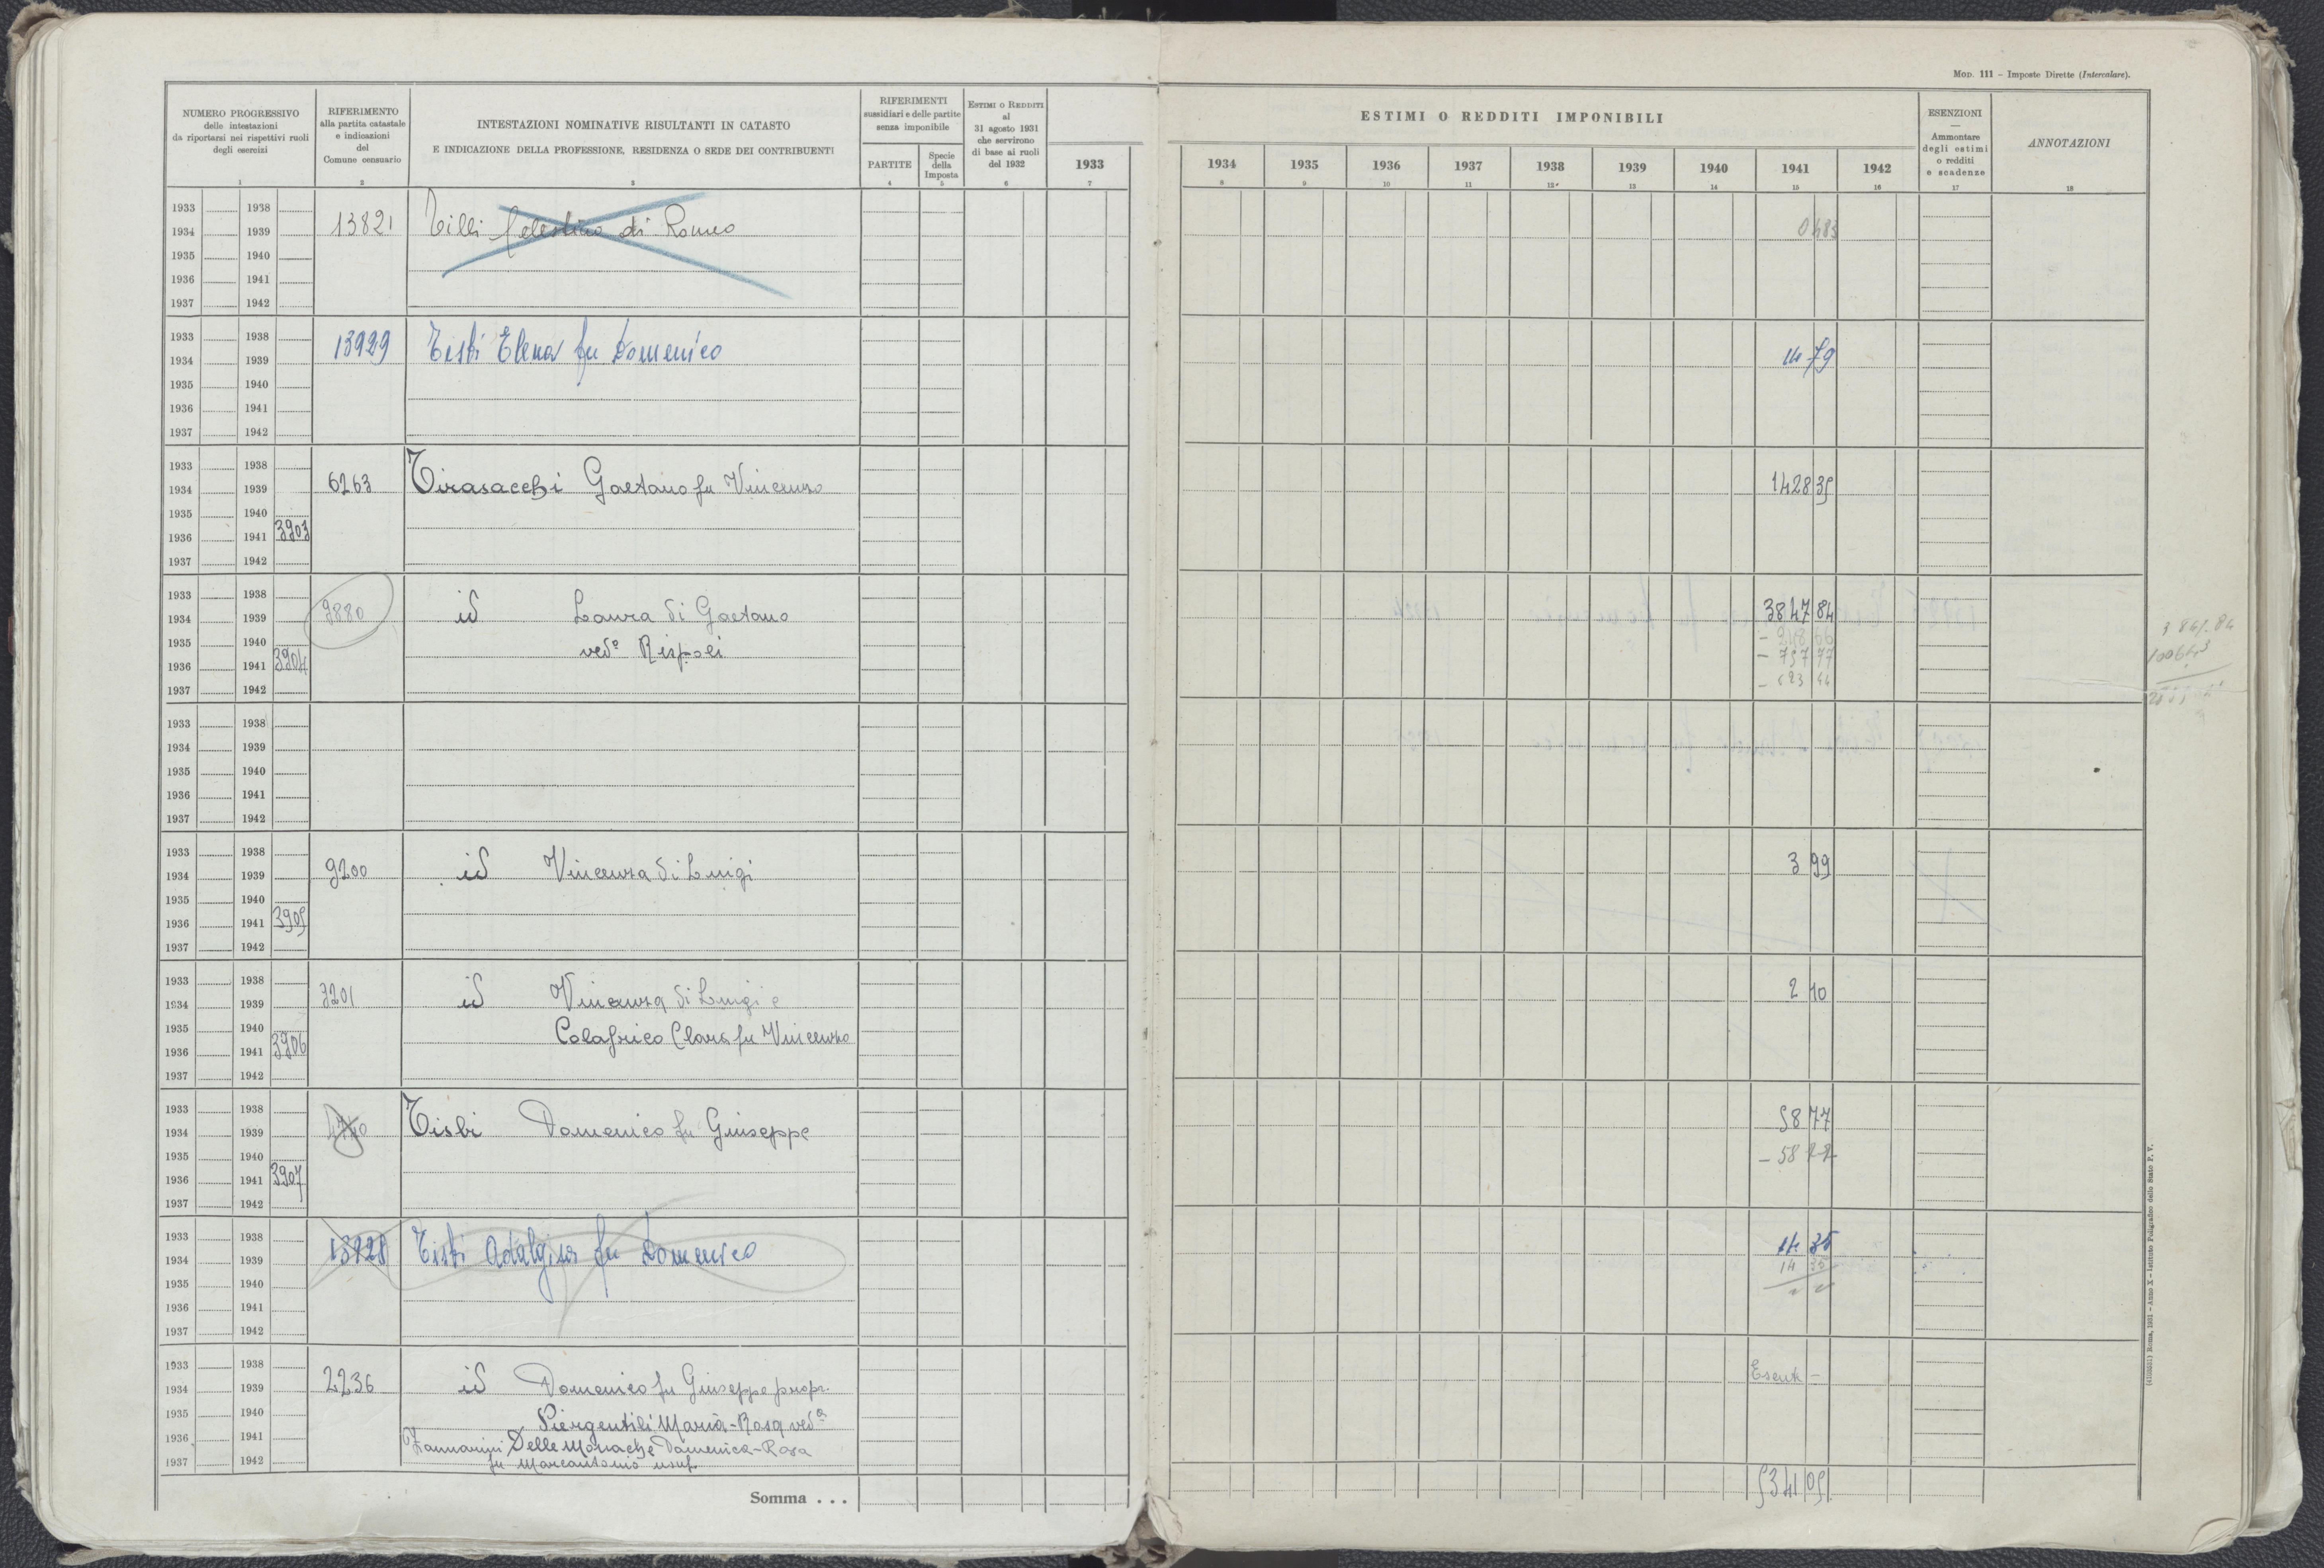 MOD. 111 – Imposte Dirette (Intercalare).
NUMERO PROGRESSIVO
delle intestazioni
da riportarsi nei rispettivi ruoli
degli esercizi
1
RIFERIMENTO
alla partita catastale
e indicazioni
del
Comune censuario
2
INTESTAZIONI NOMINATIVE RISULTANTI IN CATASTO
E INDICAZIONE DELLA PROFESSIONE, RESIDENZA O SEDE DEI CONTRIBUENTI
3
RIFERIMENTI
sussidiari e delle partite
senza imponibile
PARTITE
4
Specie
della
Imposta
5
ESTIMI O REDDITI
al
31 agosto 1931
che servirono
di base ai ruoli
del 1932
6
ESTIMI O REDDITI IMPONIBILI
1933 1934 1935 1936 1937 1938 1939 1940 1941 1942
7 8 9 10 11 12 13 14 15 16
ESENZIONI
—
Ammontare
degli estimi
o redditi
e scadenze
17
ANNOTAZIONI
18
1933 1938
1934 1939 13821 Tilli Celestino di Romeo 0 483
1935 1940
1936 1941
1937 1942
1933 1938
1934 1939 13929 Tisbi Elena fu Domenico 14 79
1935 1940
1936 1941
1937 1942
1933 1938
1934 1939 6263 Tirasacchi Gaetano fu Vincenzo 1428 35
1935 1940
1936 1941 3903
1937 1942
1933 1938
1934 1939 3880 id Laura di Gaetano 3847 84
1935 1940 vedª Rispoli
1936 1941 3904 – 757 77
1937 1942
1933 1938
1934 1939
1935 1940
1936 1941
1937 1942
1933 1938
1934 1939 9200 id Vincenza di Luigi 3 99
1935 1940
1936 1941 3905
1937 1942
1933 1938
1934 1939 3201 id Vincenza di Luigi e 2 10
1935 1940 Colafrico Clara fu Vincenzo
1936 1941 3906
1937 1942
1933 1938
1934 1939 4740 Tisbi Domenico fu Giuseppe 58 77
1935 1940 – 58 22
1936 1941 3907
1937 1942
1933 1938
1934 1939 13928 Tisbi Adalgisa fu Domenico 14 35
1935 1940 14 35
1936 1941
1937 1942
1933 1938
1934 1939 2236 id Domenico fu Giuseppe propr. Esente –
1935 1940 Piergentili Maria-Rosa vedª
1936 1941 Zannarini Delle Monache Domenica-Rosa
1937 1942 fu Marcantonio usuf.
Somma . . . 5341 05
(4103551) Roma, 1931 – Anno X – Istituto Poligrafico dello Stato P. V.